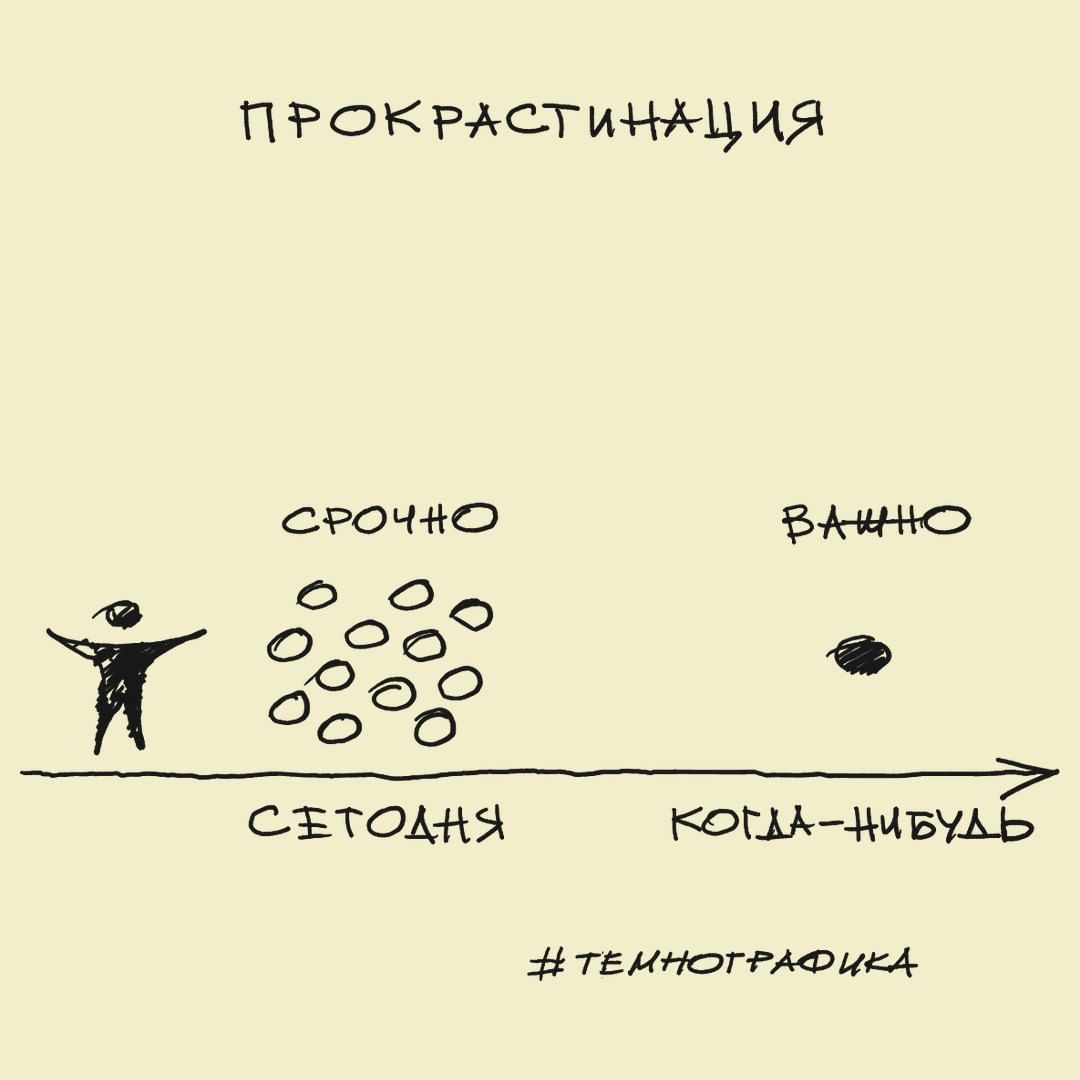 ПРОКРАСТИНАЦИЯ
СРОЧНО
ВАЖНО
СЕГОДНЯ
КОГДА-НИБУДЬ
#ТЕМНОГРАФИКА